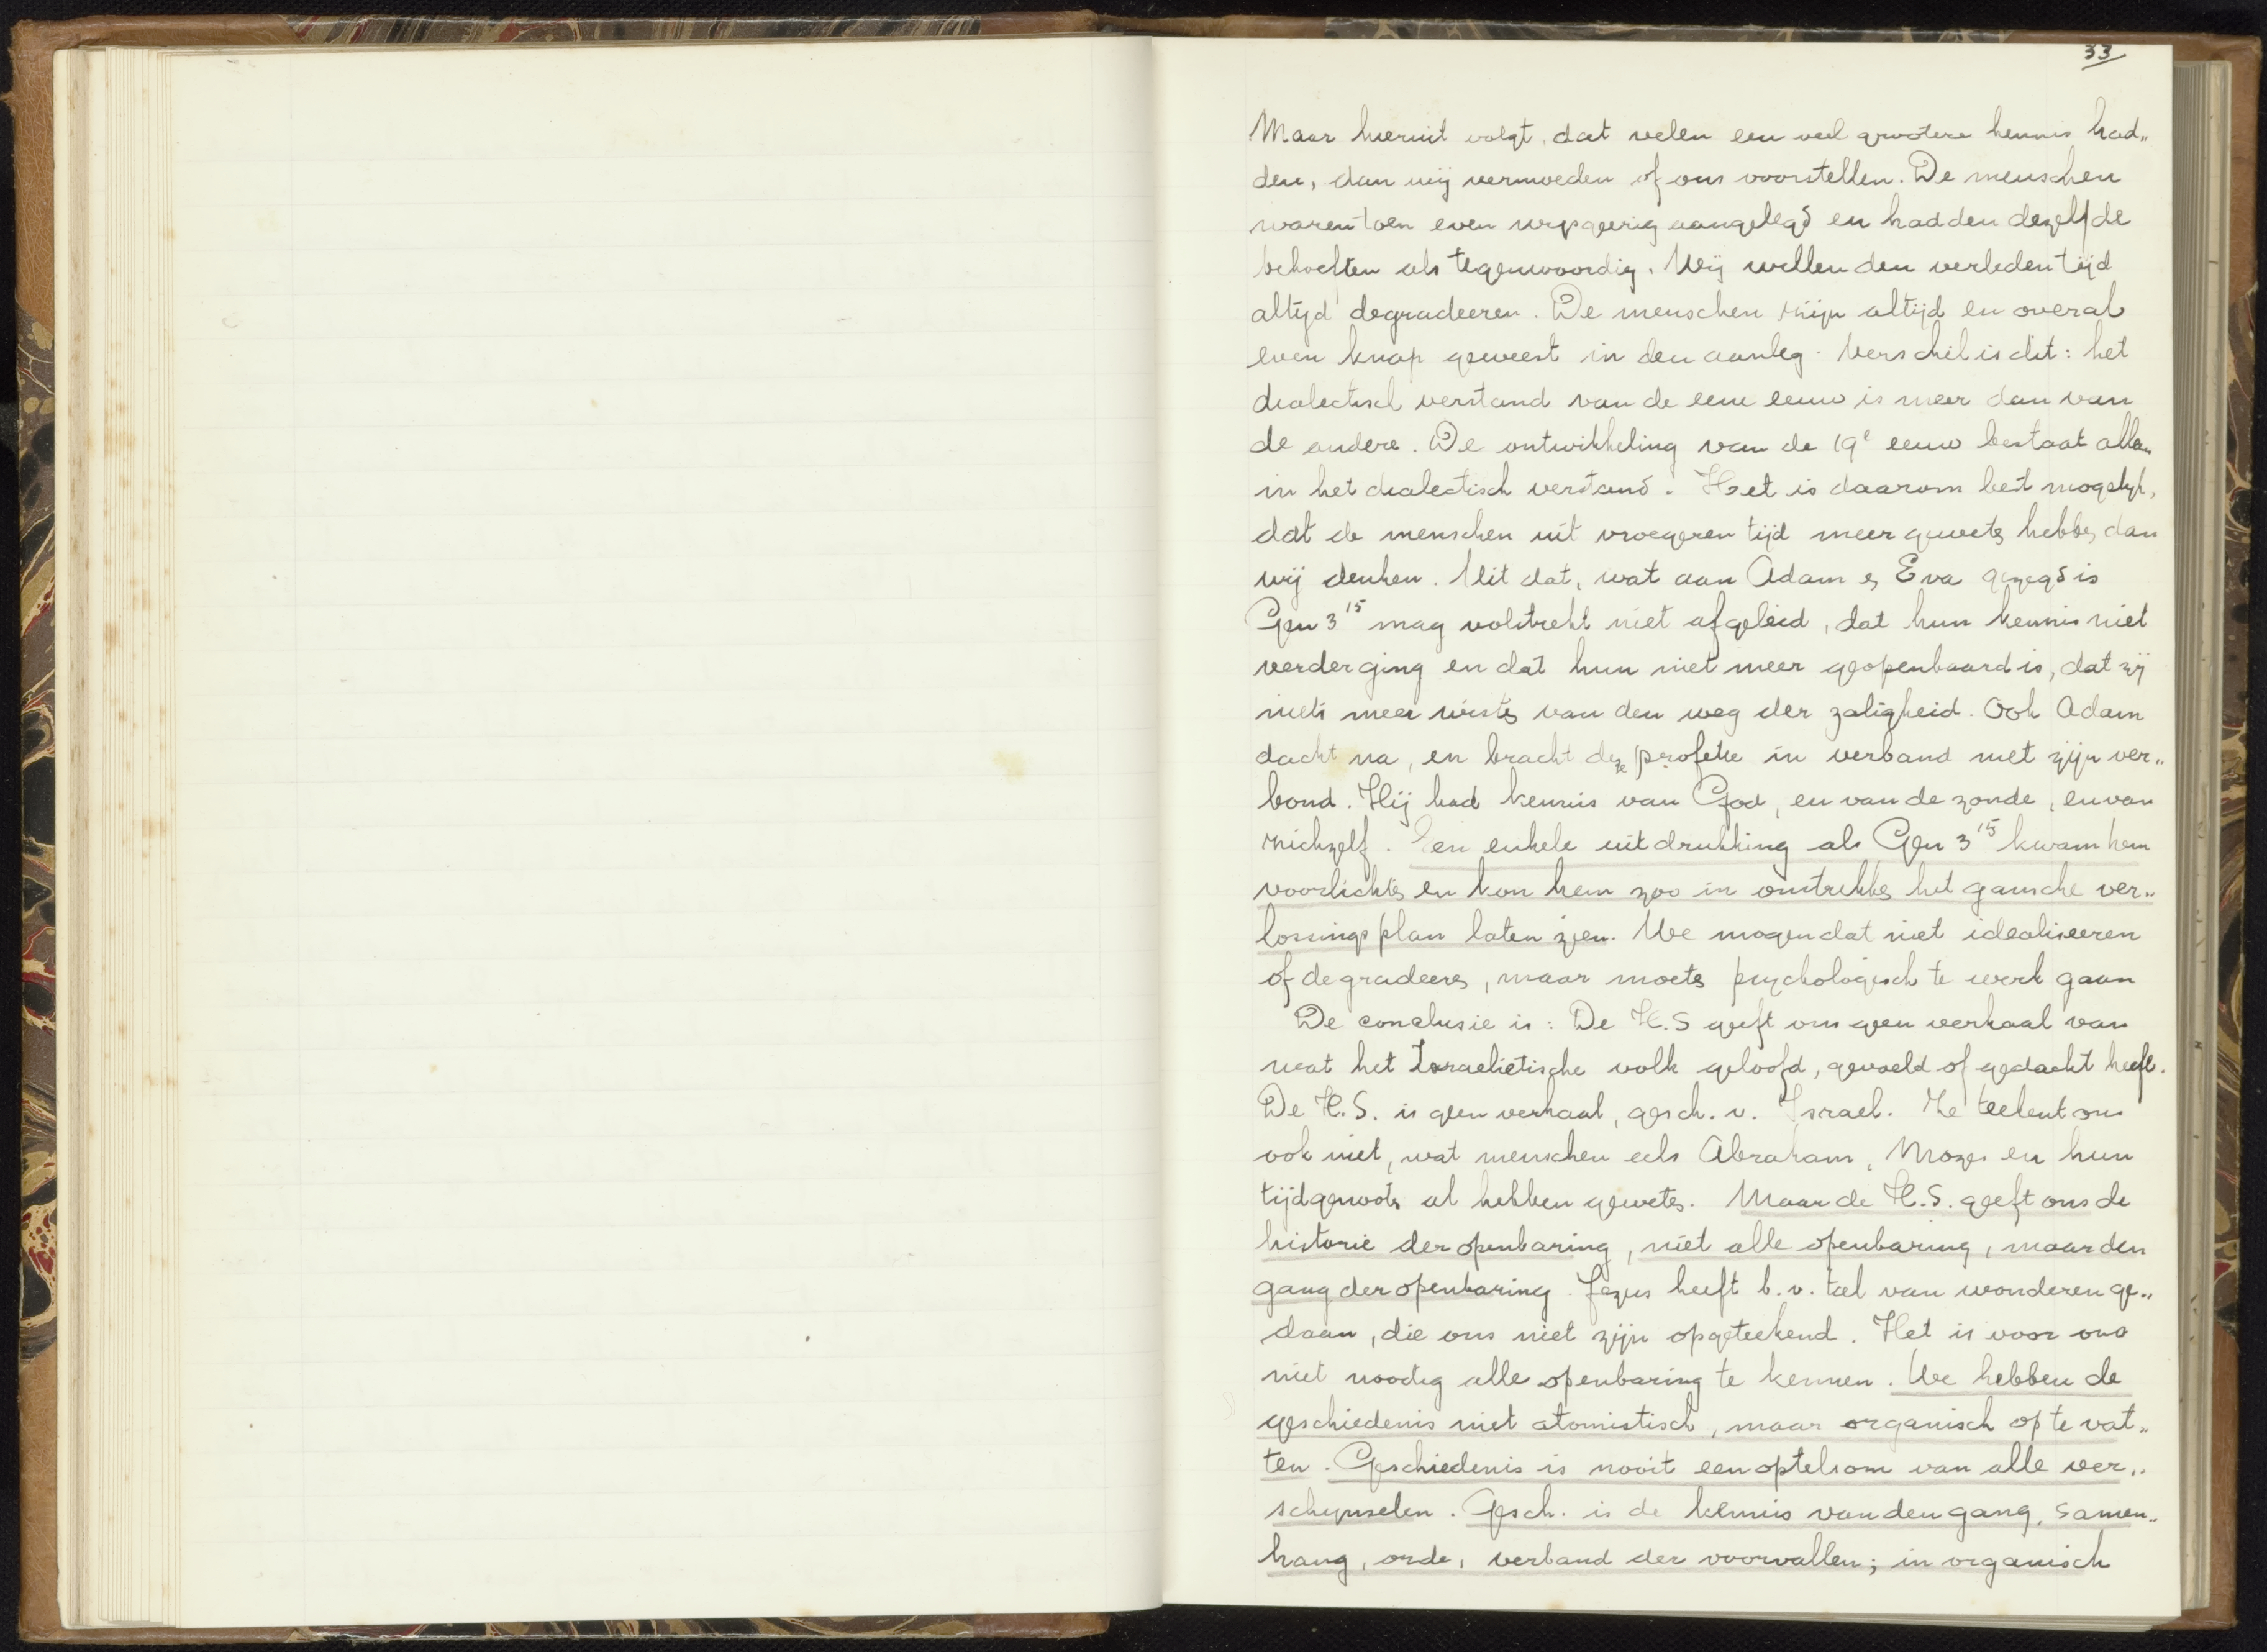 33
Maar hieruit volgt, dat velen een veel grootere kennis had„
den, dan wij vermoeden of ons voorstellen. De menschen
waren toen even wijsgeerig aangelegd en hadden dezelfde
behoeften als tegenwoordig. Wij willen den verleden tijd
altijd degradeeren. De menschen zijn altijd en overal
even knap geweest in den aanleg. Verschil is dit: het
dialectisch verstand van de eene eeuw is meer dan van
de andere. De ontwikkeling van de 19e eeuw bestaat alleen
in het dialectisch verstand. Het is daarom best mogelijk,
dat de menschen uit vroegeren tijd meer geweten hebben, dan
wij denken. Uit dat, wat aan Adam en Eva gezegd is
Gen 3 15 mag volstrekt niet afgeleid, dat hun kennis niet
verder ging en dat hun niet meer geopenbaard is, dat zij
niets meer wisten van den weg der zaligheid. Ook Adam
dacht na, en bracht deze profetie in verband met zijn ver„
bond. Hij had kennis van God, en van de zonde, en van
zichzelf. Een enkele uitdrukking als Gen 3 15 kwam hem
voorlichten en kon hem zoo in omtrekken het gansche ver„
lossingsplan laten zien. We mogen dat niet idealiseeren
of degradeeren, maar moeten psychologisch te werk gaan
De conclusie is: De H.S geeft ons geen verhaal van
wat het Israelietische volk geloofd, gevoeld of gedacht heeft.
De H.S. is geen verhaal, gesch. v. Israel. Ze teekent ons
ook niet, wat menschen als Abraham, Mozes en hun
tijdgenooten al hebben geweten. Maar de H.S. geeft ons de
historie der openbaring, niet alle openbaring, maar den
gang der openbaring. Jezus heeft b.v. tal van wonderen ge„
daan, die ons niet zijn opgeteekend. Het is voor ons
niet noodig alle openbaring te kennen. We hebben de
geschiedenis niet atomistisch, maar organisch op te vat„
ten. Geschiedenis is nooit een optelsom van alle ver„
schijnselen. Gesch. is de kennis van den gang, samen„
hang, orde, verband der voorvallen; in organisch